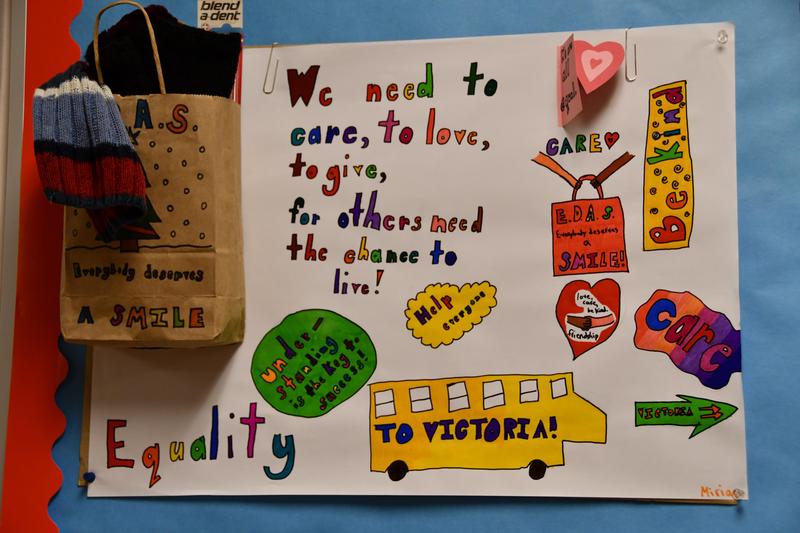 blend
a·dent
A.S.
Everybody deserves
A SMILE
We need to
care, to love,
to give,
for others need
the chance to
live!
CARE
E.D.A.S.
Everybody deserves
a
SMILE!
Be Kind
Help
everyone
love,
care,
be kind.
friendship
care
under-
standing
is the key to
success!
TO VICTORIA!
VICTORIA
Equality